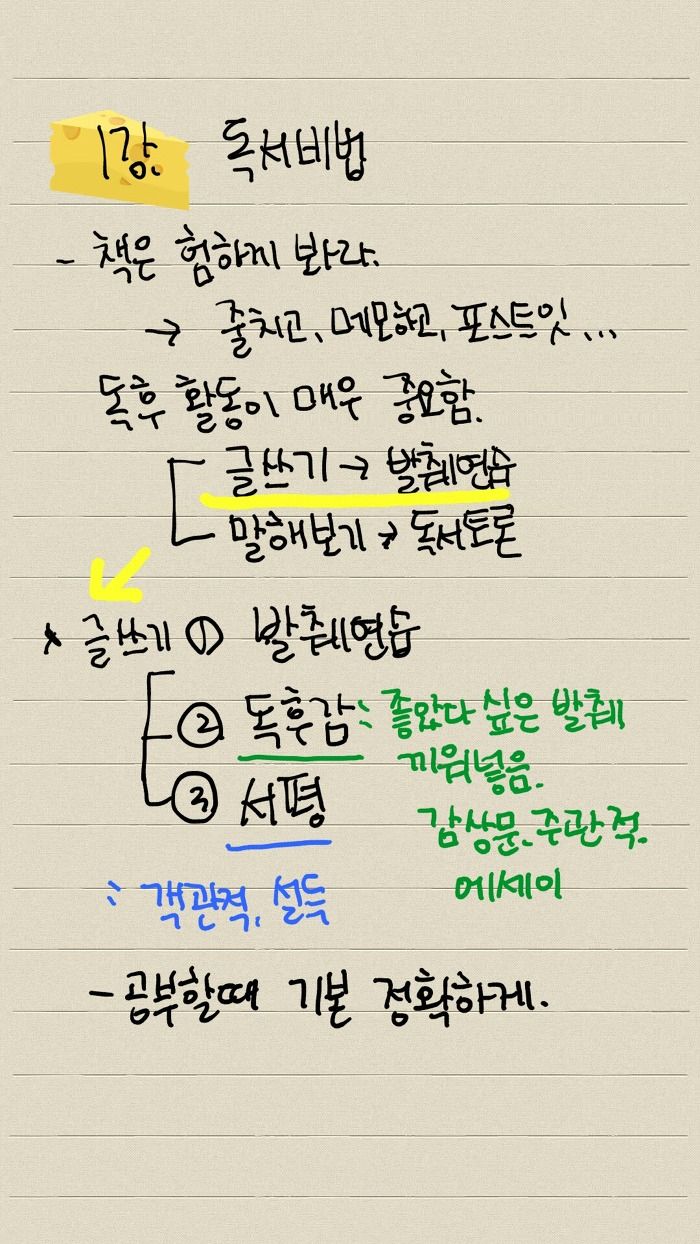 1강. 독서비법
- 책은 험하게 봐라.
→ 줄치고, 메모하고, 포스트잇...
독후 활동이 매우 중요함.
글쓰기 → 발췌연습
말해보기 → 독서토론
* 글쓰기 ① 발췌연습
② 독후감 : 좋았다 싶은 발췌
끼워넣음.
③ 서평
감상문. 주관적.
에세이
: 객관적, 설득
- 공부할때 기본 정확하게.